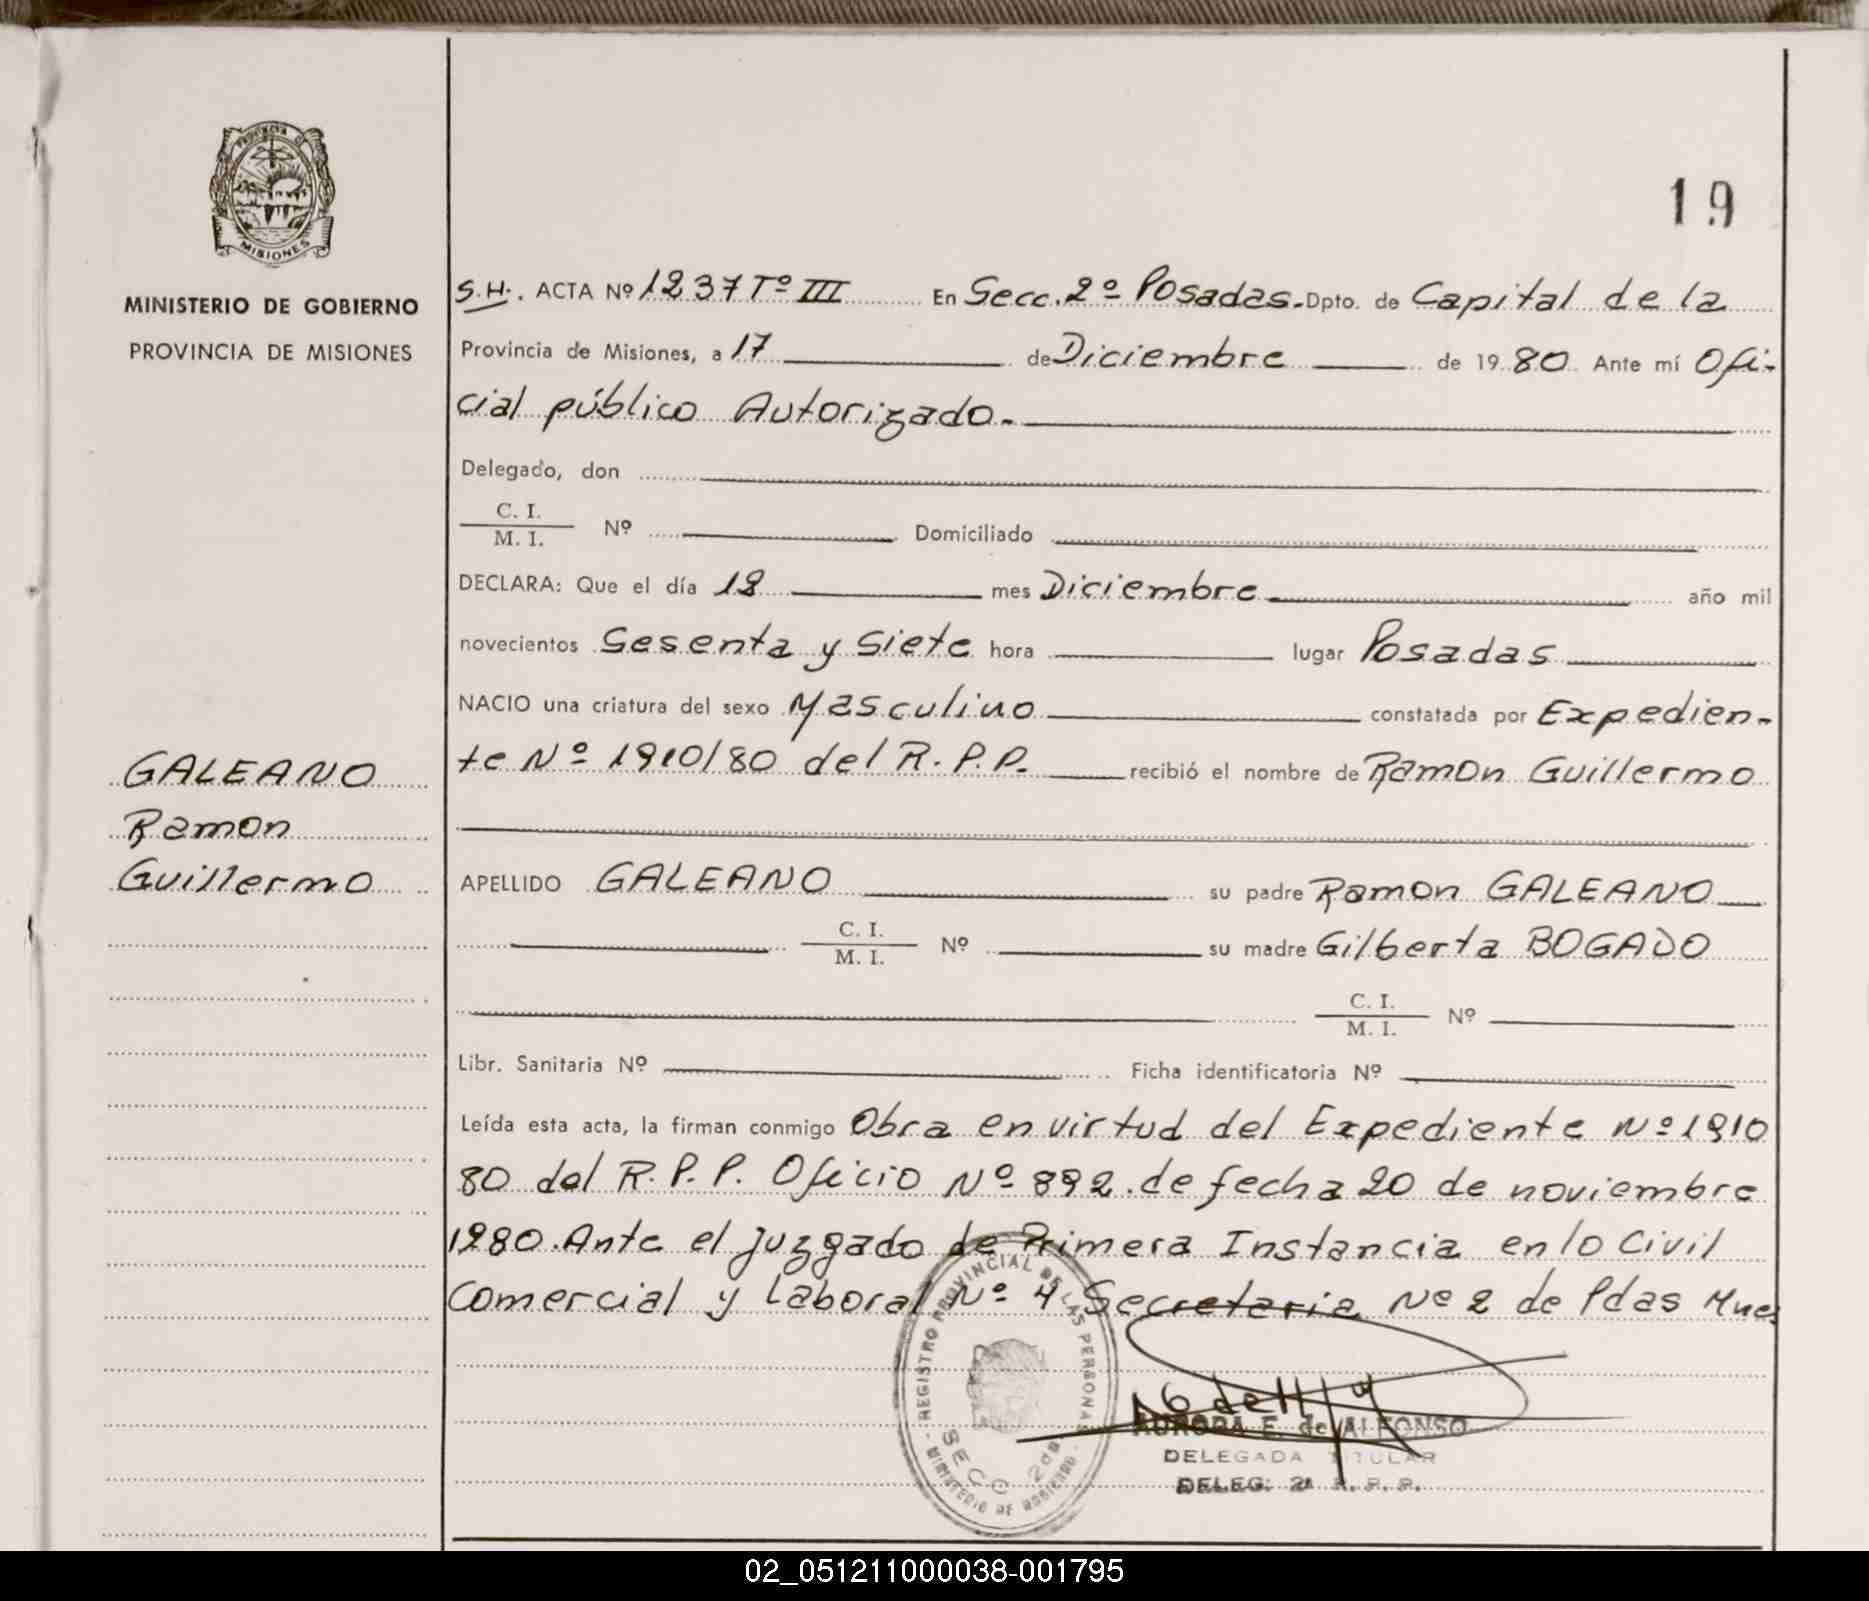 PROVINCIA D
MISIONES
MINISTERIO DE GOBIERNO
PROVINCIA DE MISIONES
GALEANO
Ramon
Guillermo
19
S.H. ACTA Nº 1237 Tº III En Secc. 2º Posadas. Dpto. de Capital de la
Provincia de Misiones, a 17 de Diciembre de 1980 Ante mí Ofi-
cial público Autorizado.
Delegado, don
C. I.
M. I. Nº Domiciliado
DECLARA: Que el día 18 mes Diciembre año mil
novecientos Sesenta y Siete hora lugar Posadas
NACIO una criatura del sexo Masculino constatada por Expedien-
te Nº 1910/80 del R.P.P. recibió el nombre de Ramon Guillermo
APELLIDO GALEANO su padre Ramon GALEANO
C. I.
M. I. Nº su madre Gilberta BOGADO
C. I.
M. I. Nº
Libr. Sanitaria Nº Ficha identificatoria Nº
Leída esta acta, la firman conmigo Obra en virtud del Expediente Nº 1910
80 del R.P.P. Oficio Nº 892. de fecha 20 de noviembre
1980. Ante el juzgado de Primera Instancia en lo Civil
Comercial y Laboral Nº 4 Secretaria Nº 2 de Pdas Mnes
REGISTRO PROVINCIAL DE LAS PERSONAS
MINISTERIO DE GOBIERNO
SECC 2da
AURORA E. de ALFONSO
DELEGADA TITULAR
DELEG: 2ª R. P. P.
02_051211000038-001795